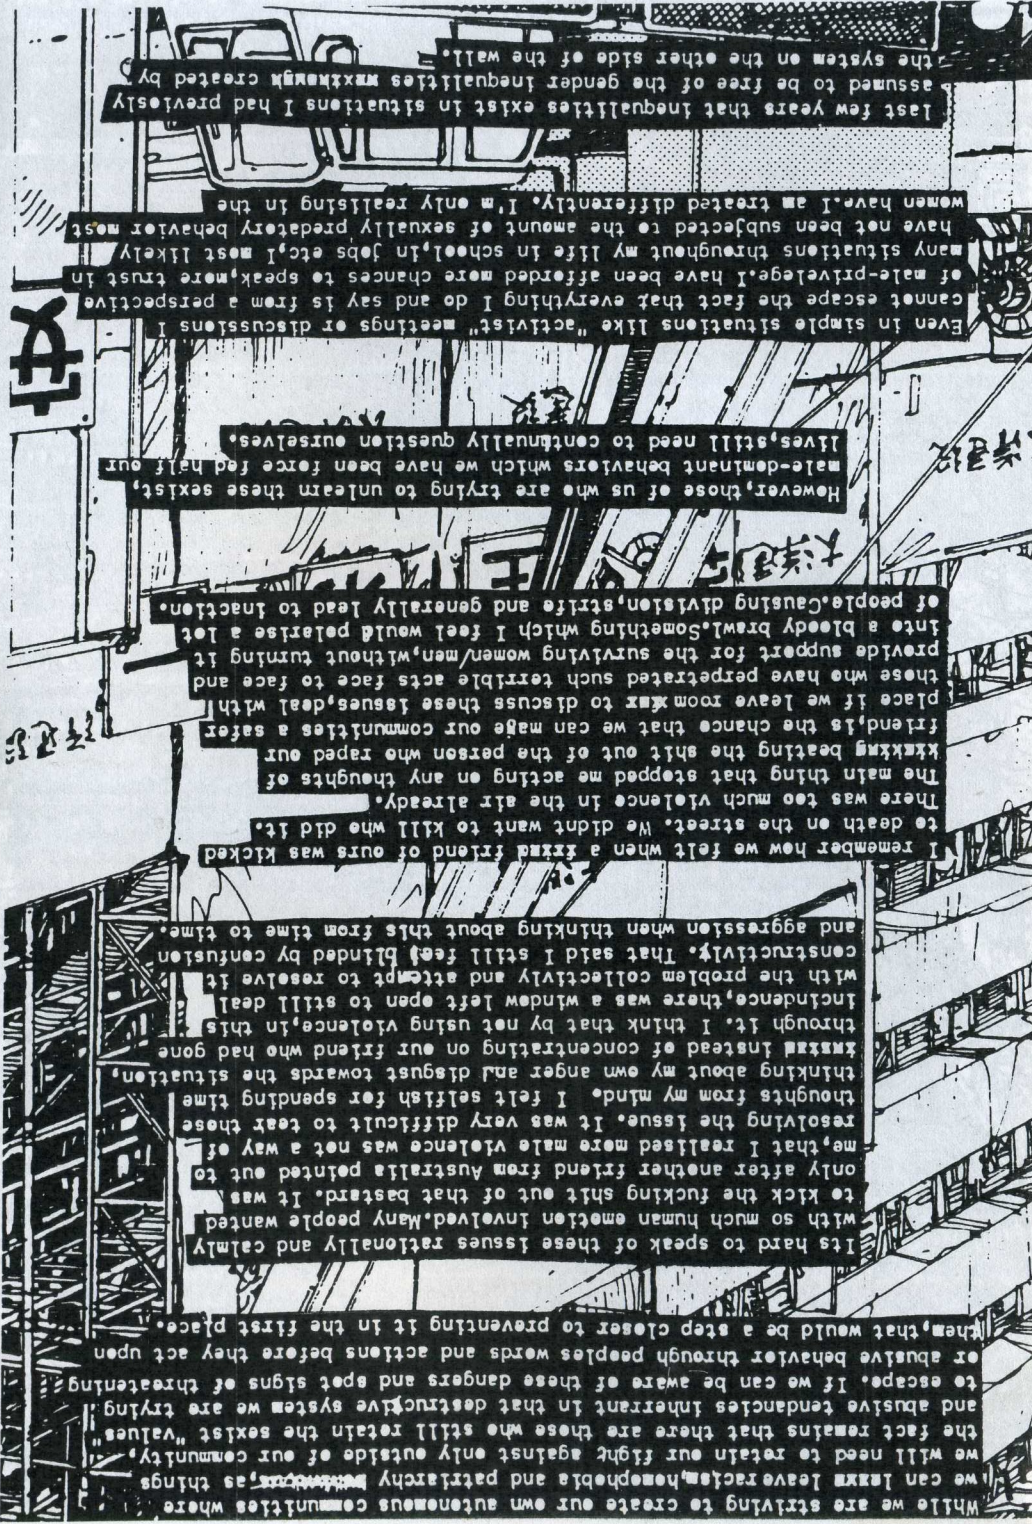 While we are striving to create our own autonomous communities where
we can leave racism, homophobia and patriarchy ,as things
we will need to retain our fight against only outside of our community,
the fact remains that there are those who still retain the sexist "values"
and abusive tendancies inherrant in that destructive system we are trying
to escape. If we can be aware of these dangers and spot signs of threatening
or abusive behavior through peoples words and actions before they act upon
them,that would be a step closer to preventing it in the first place.
Its hard to speak of these issues rationally and calmly
with so much human emotion involved.Many people wanted
to kick the fucking shit out of that bastard. It was
only after another friend from Australia pointed out to
me,that I realised more male violence was not a way of
resolving the issue. It was very difficult to tear those
thoughts from my mind. I felt selfish for spending time
thinking about my own anger and disgust towards the situation,
instead of concentrating on our friend who had gone
through it. I think that by not using violence,in this
incindence,there was a window left open to still deal
with the problem collectivly and attempt to resolve it
constructivly. That said I still feel blinded by confusion
and aggression when thinking about this from time to time.
I remember how we felt when a friend of ours was kicked
to death on the street. We didnt want to kill who did it.
There was too much violence in the air already.
The main thing that stopped me acting on any thoughts of
beating the shit out of the person who raped our
friend,is the chance that we can make our communities a safer
place if we leave room to discuss these issues,deal with
those who have perpetrated such terrible acts face to face and
provide support for the surviving women/men,without turning it
into a bloody brawl.Something which I feel would polarise a lot
of people.Causing division,strife and generally lead to inaction.
However,those of us who are trying to unlearn these sexist,
male-dominant behaviors which we have been force fed half our
lives,still need to continually question ourselves.
Even in simple situations like "activist" meetings or discussions I
cannot escape the fact that everything I do and say is from a perspective
of male-privelege.I have been afforded more chances to speak,more trust in
many situations throughout my life in school,in jobs etc,I most likely
have not been subjected to the amount of sexually predatory behavior most
women have.I am treated differently. I'm only realising in the
last few years that inequalities exist in situations I had previosly
assumed to be free of the gender inequalities created by
the system on the other side of the wall.